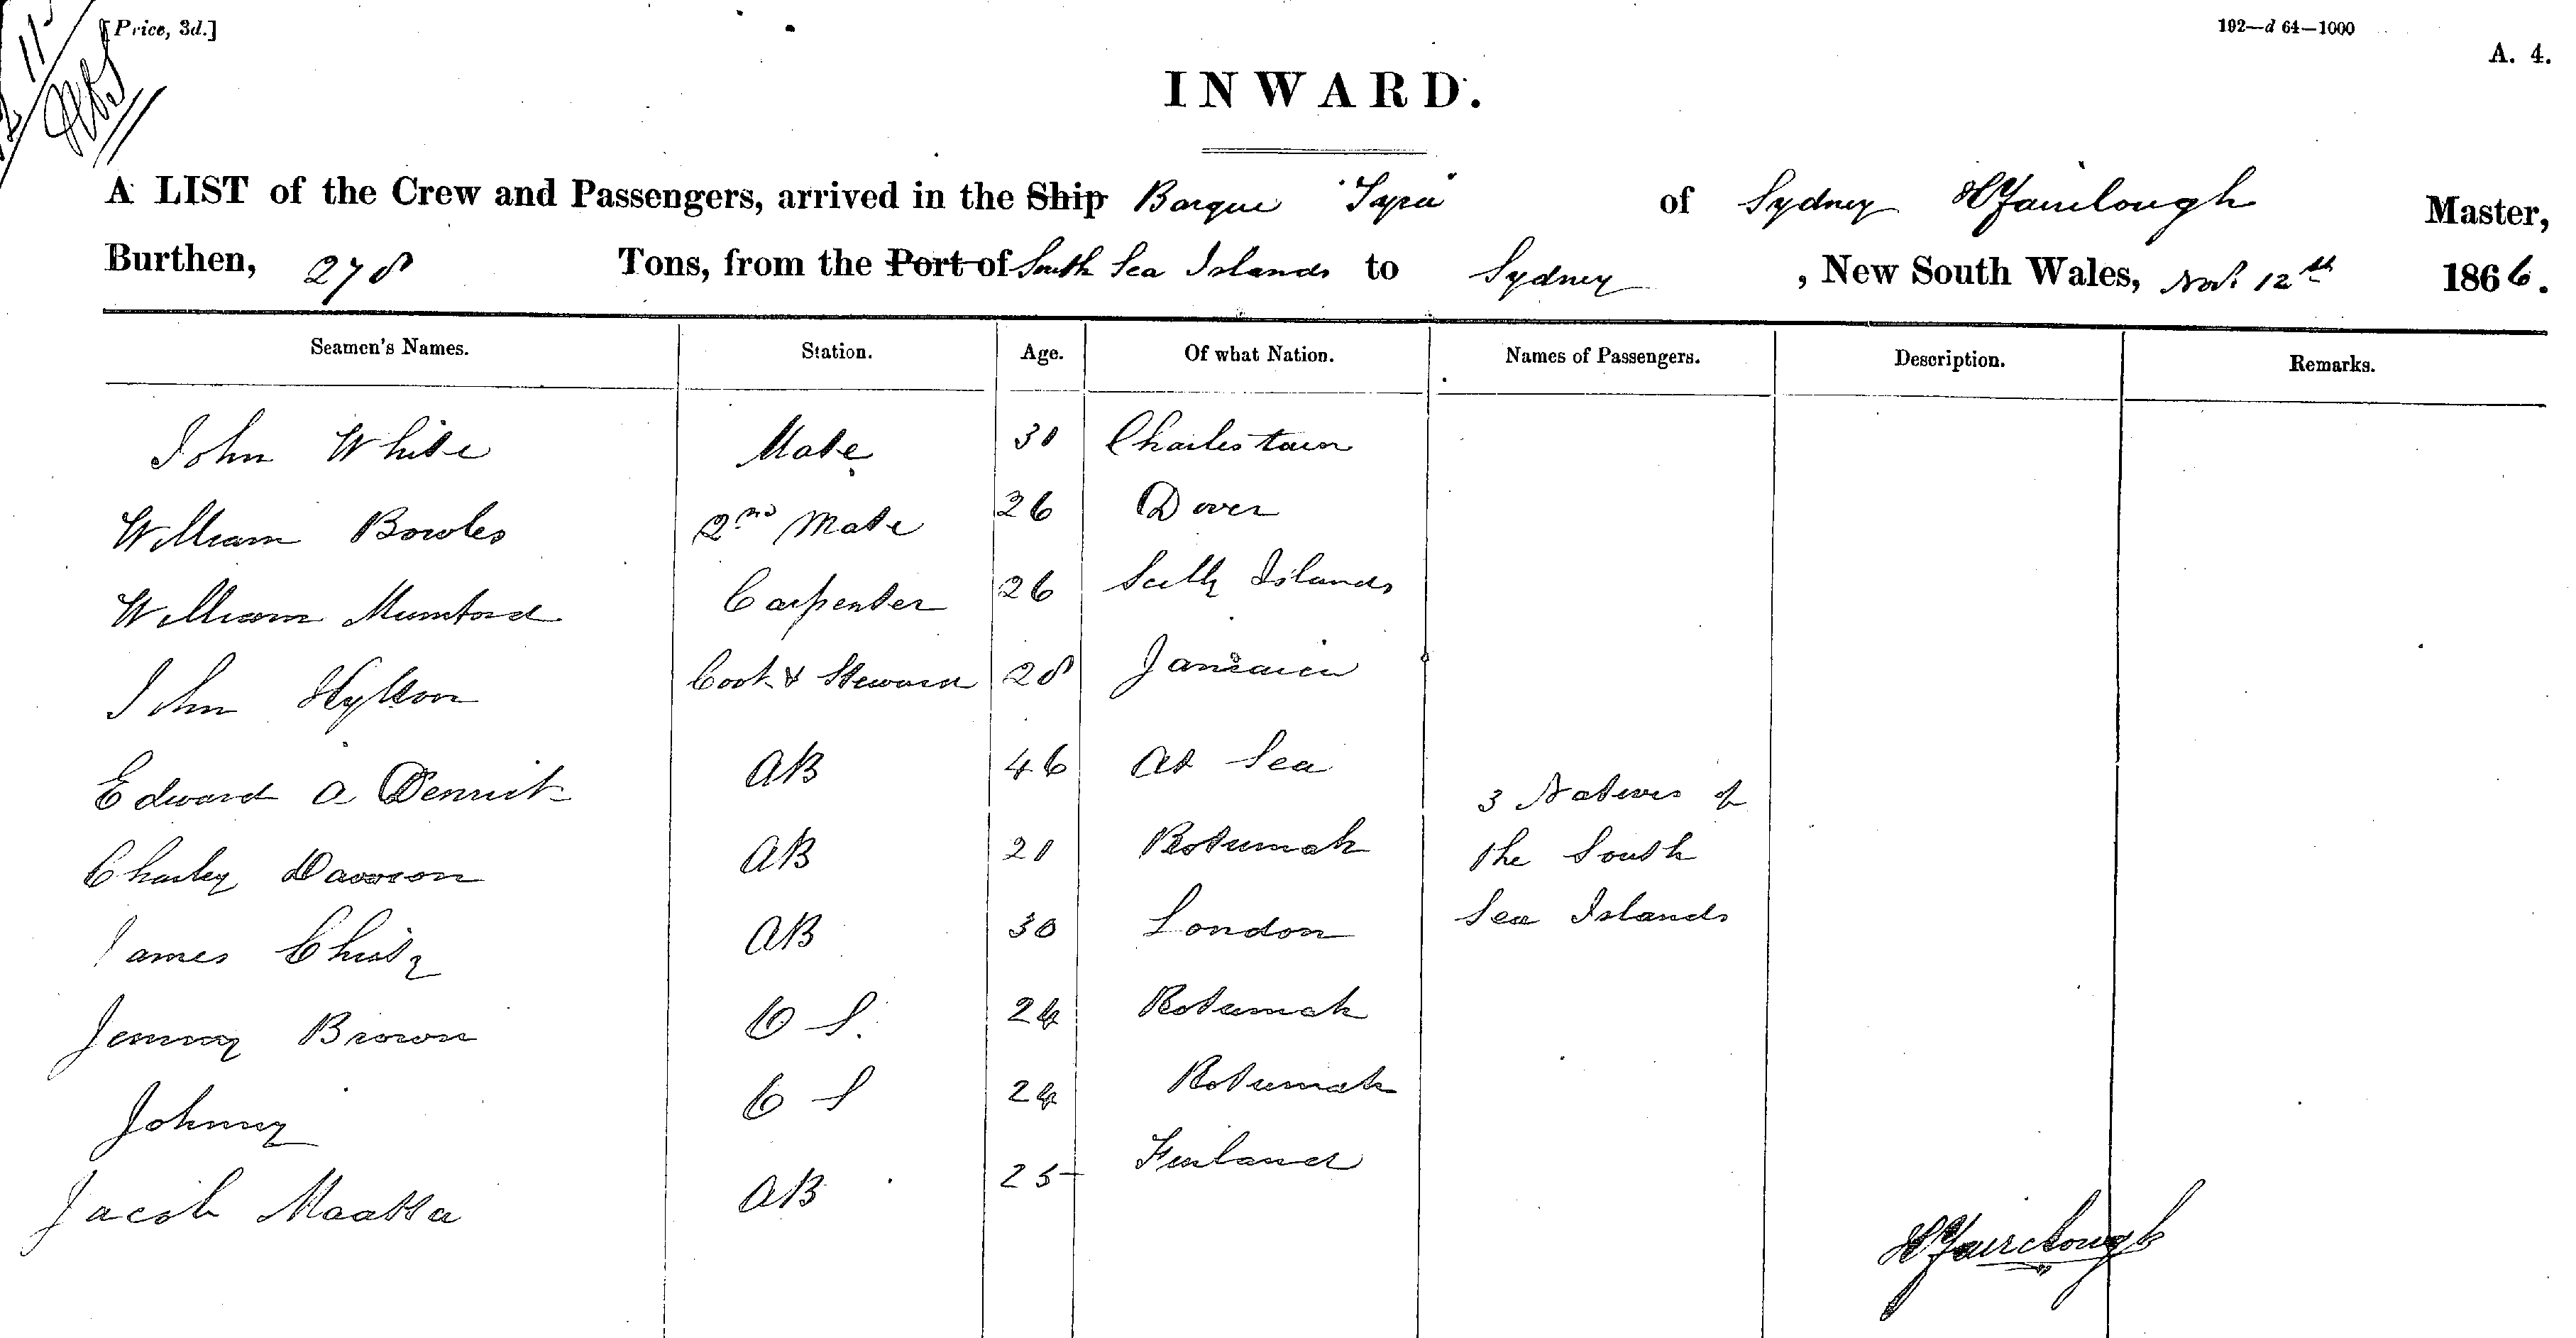 [Price, 3d.]
192—d 64—1000
A. 4.
INWARD.
A LIST of the Crew and Passengers, arrived in the Ship Barque "Syria" of Sydney H Fairclough Master,
Burthen, 278 Tons, from the Port of South Sea Islands to Sydney, New South Wales, Nov. 12th 1866.
Seamen's Names. Station. Age. Of what Nation. Names of Passengers. Description. Remarks.
John White Mate 30 Charlestown
William Bowles 2nd Mate 26 Dover
William Mumford Carpenter 26 Scilly Islands
John Hylton Cook & Steward 28 Jamaica
Edward A AB 46 At Sea
3 Natives of
Charley Dawson AB 21 Rotumah
the South
James Christy AB 30 London
Sea Islands
Jemmy Brown O S. 24 Rotumah
Johnny O S 24 Rotumah
Jacob Maatta AB 25 Finland
H Fairclough